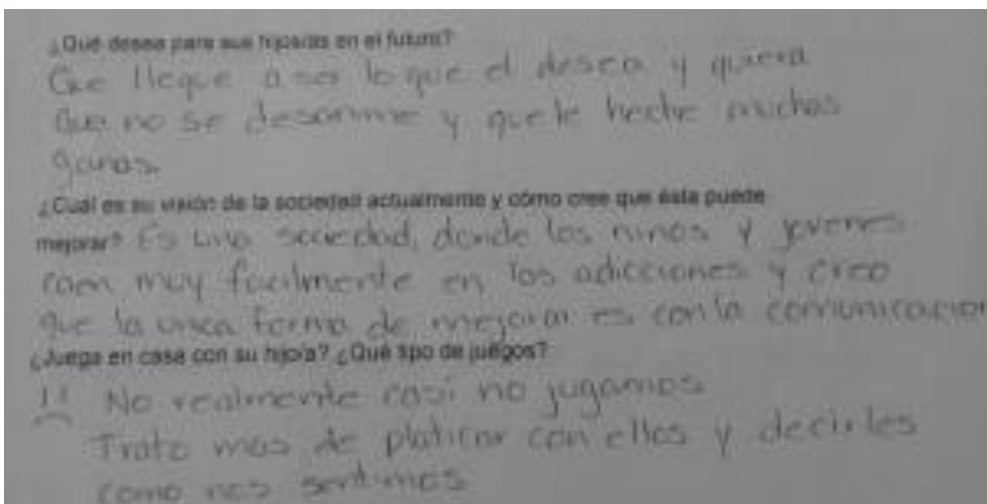 ¿Qué desea para sus hijos/as en el futuro?
Que llegue a ser lo que el desea y quiera
Que no se desanime y que le heche muchas
ganas.
¿Cuál es su visión de la sociedad actualmente y cómo cree que ésta puede
mejorar? Es una sociedad, donde los ninos y jovenes
caen muy facilmente en las adicciones y creo
que la unica forma de mejorar es con la comunicacion
¿Juega en casa con su hijo/a? ¿Qué tipo de juegos?
No realmente casi no jugamos
Trato mas de platicar con ellos y decirles
como nos sentimos